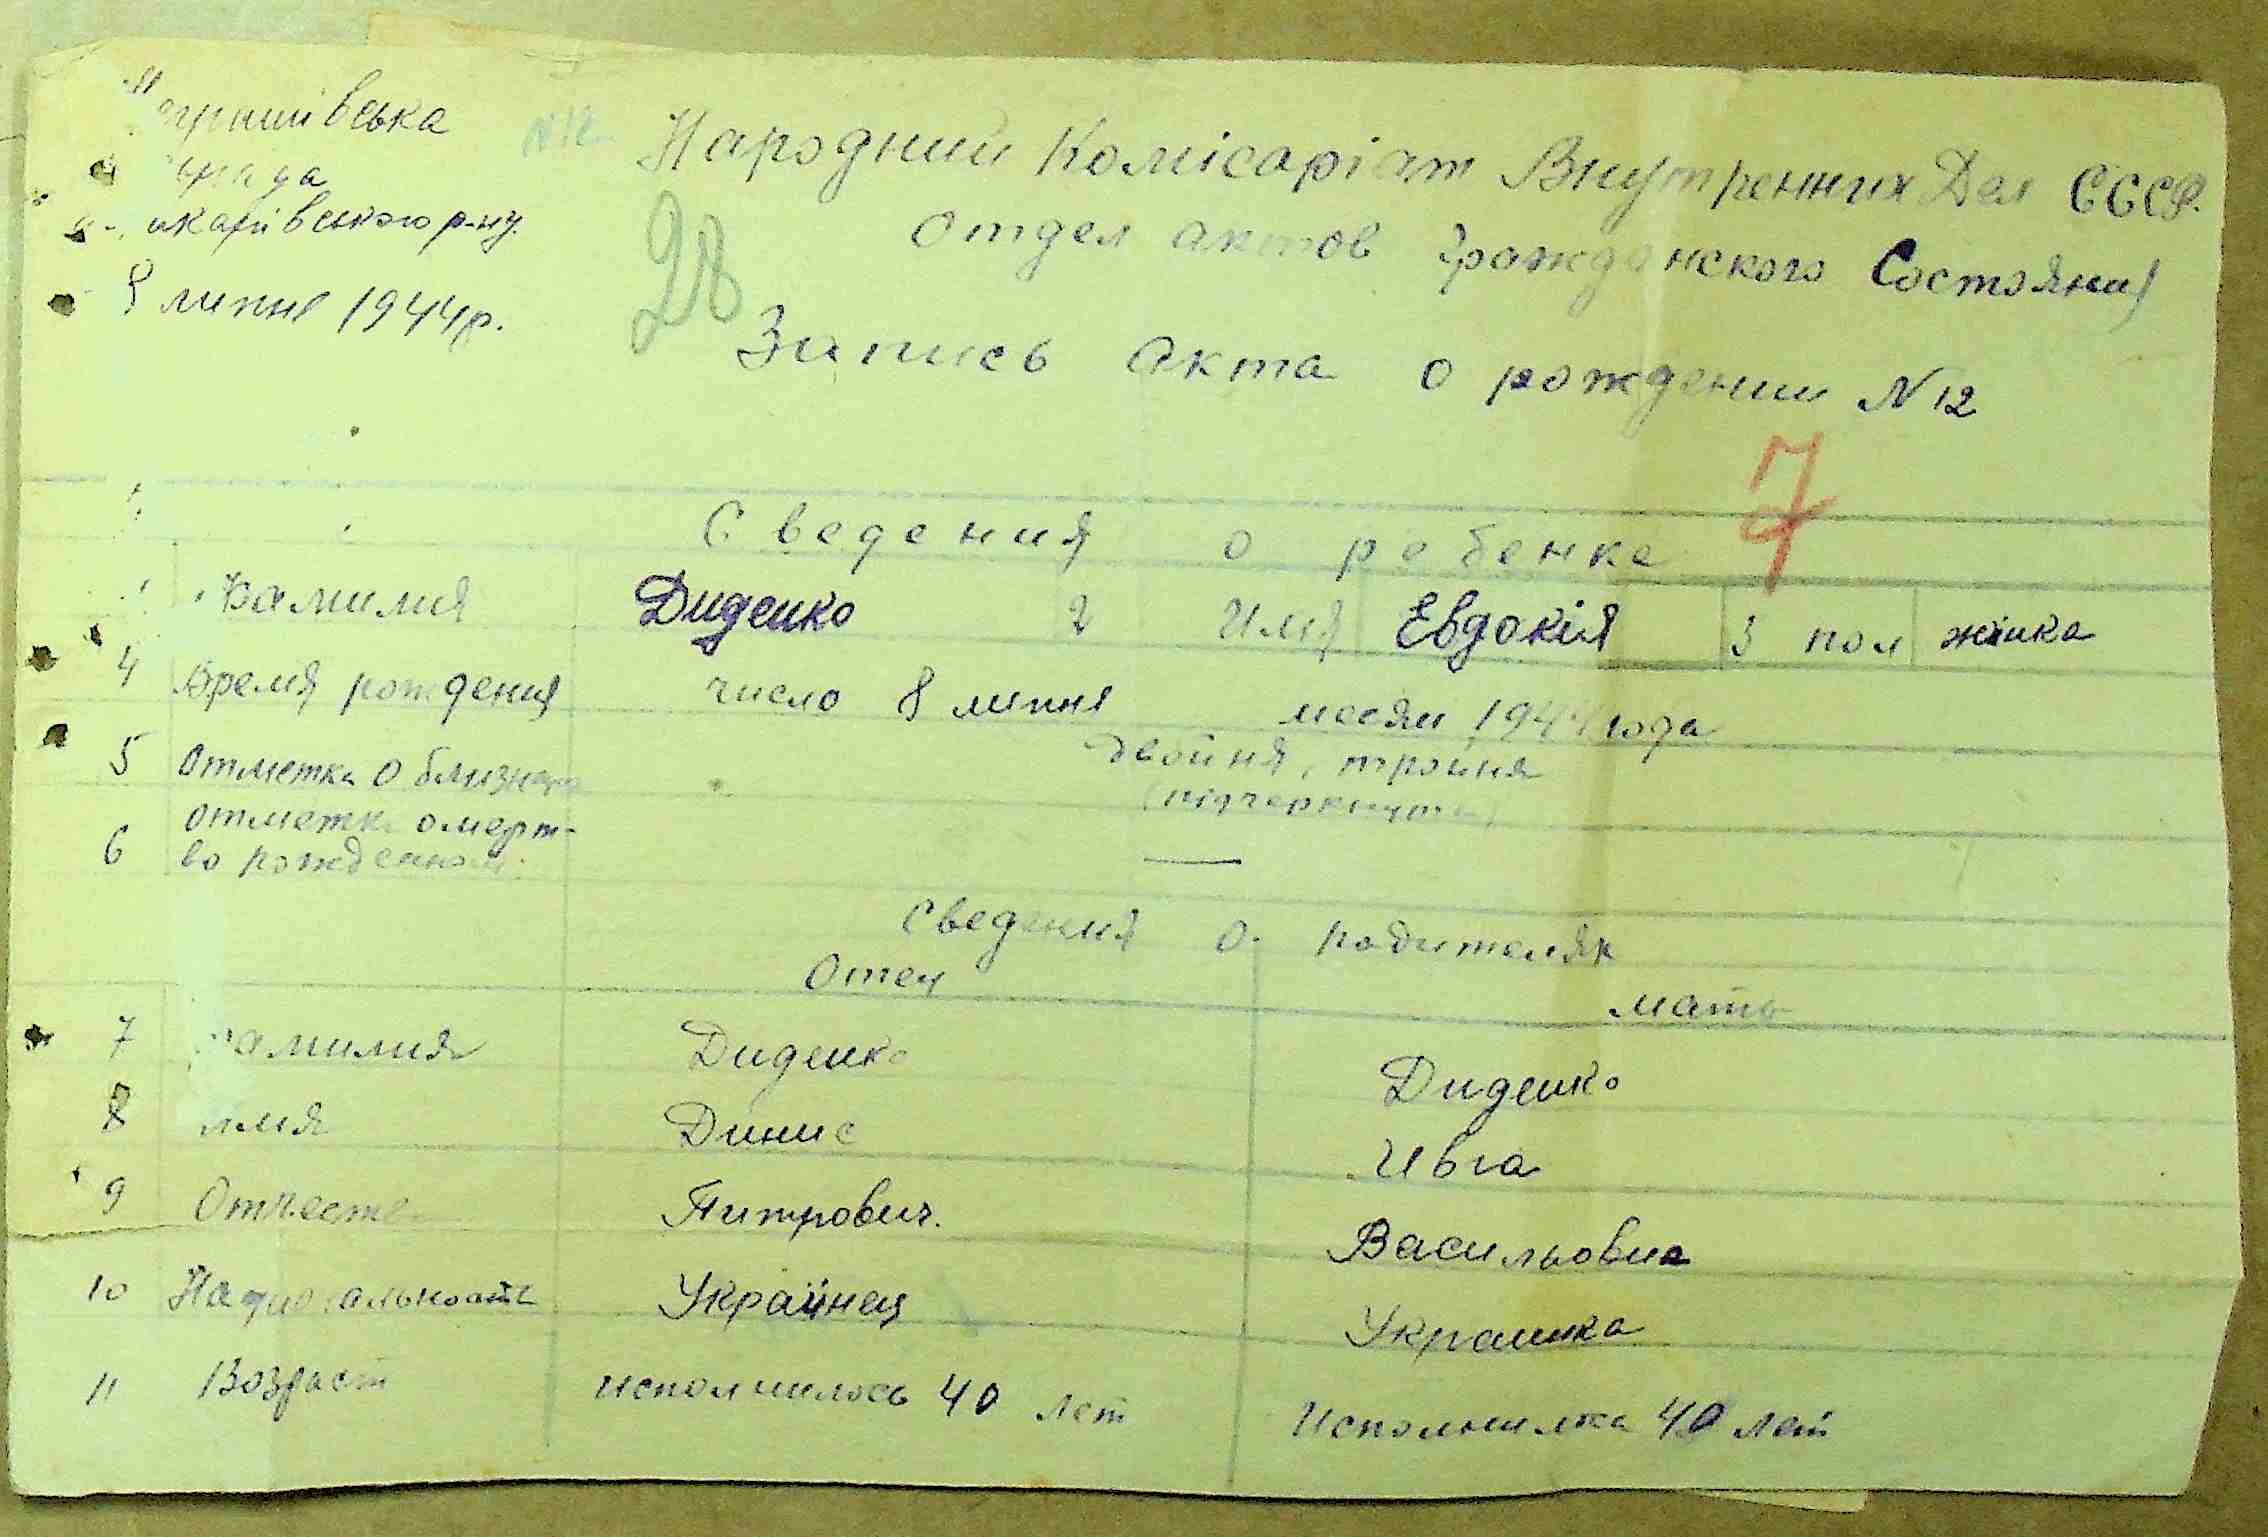 р-ну.
8 липня 1944 р.
28
Народний Комісаріат Внутренних Дел СССР.
Отдел актов Гражданского Состояния
Запись Акта о рождении N 12
7
Сведения о ребенке
Фамилия Диденко 2 Имя Евдокія 3 пол жінка
4 Время рождения число 8 липня месяц 1944 года
5 Отметка о близнецах двойня, тройня
(підчеркнуть)
отметка о мерт-
6 во рожденном. —
Сведения о родителях
Отец мать
7 Фамилия Диденко Диденко
8 имя Динис Ивга
9 Отчество Питрович. Васильовна
10 Национальность Украінец Украинка
11 Возраст исполнилось 40 лет Исполнилка 40 лет